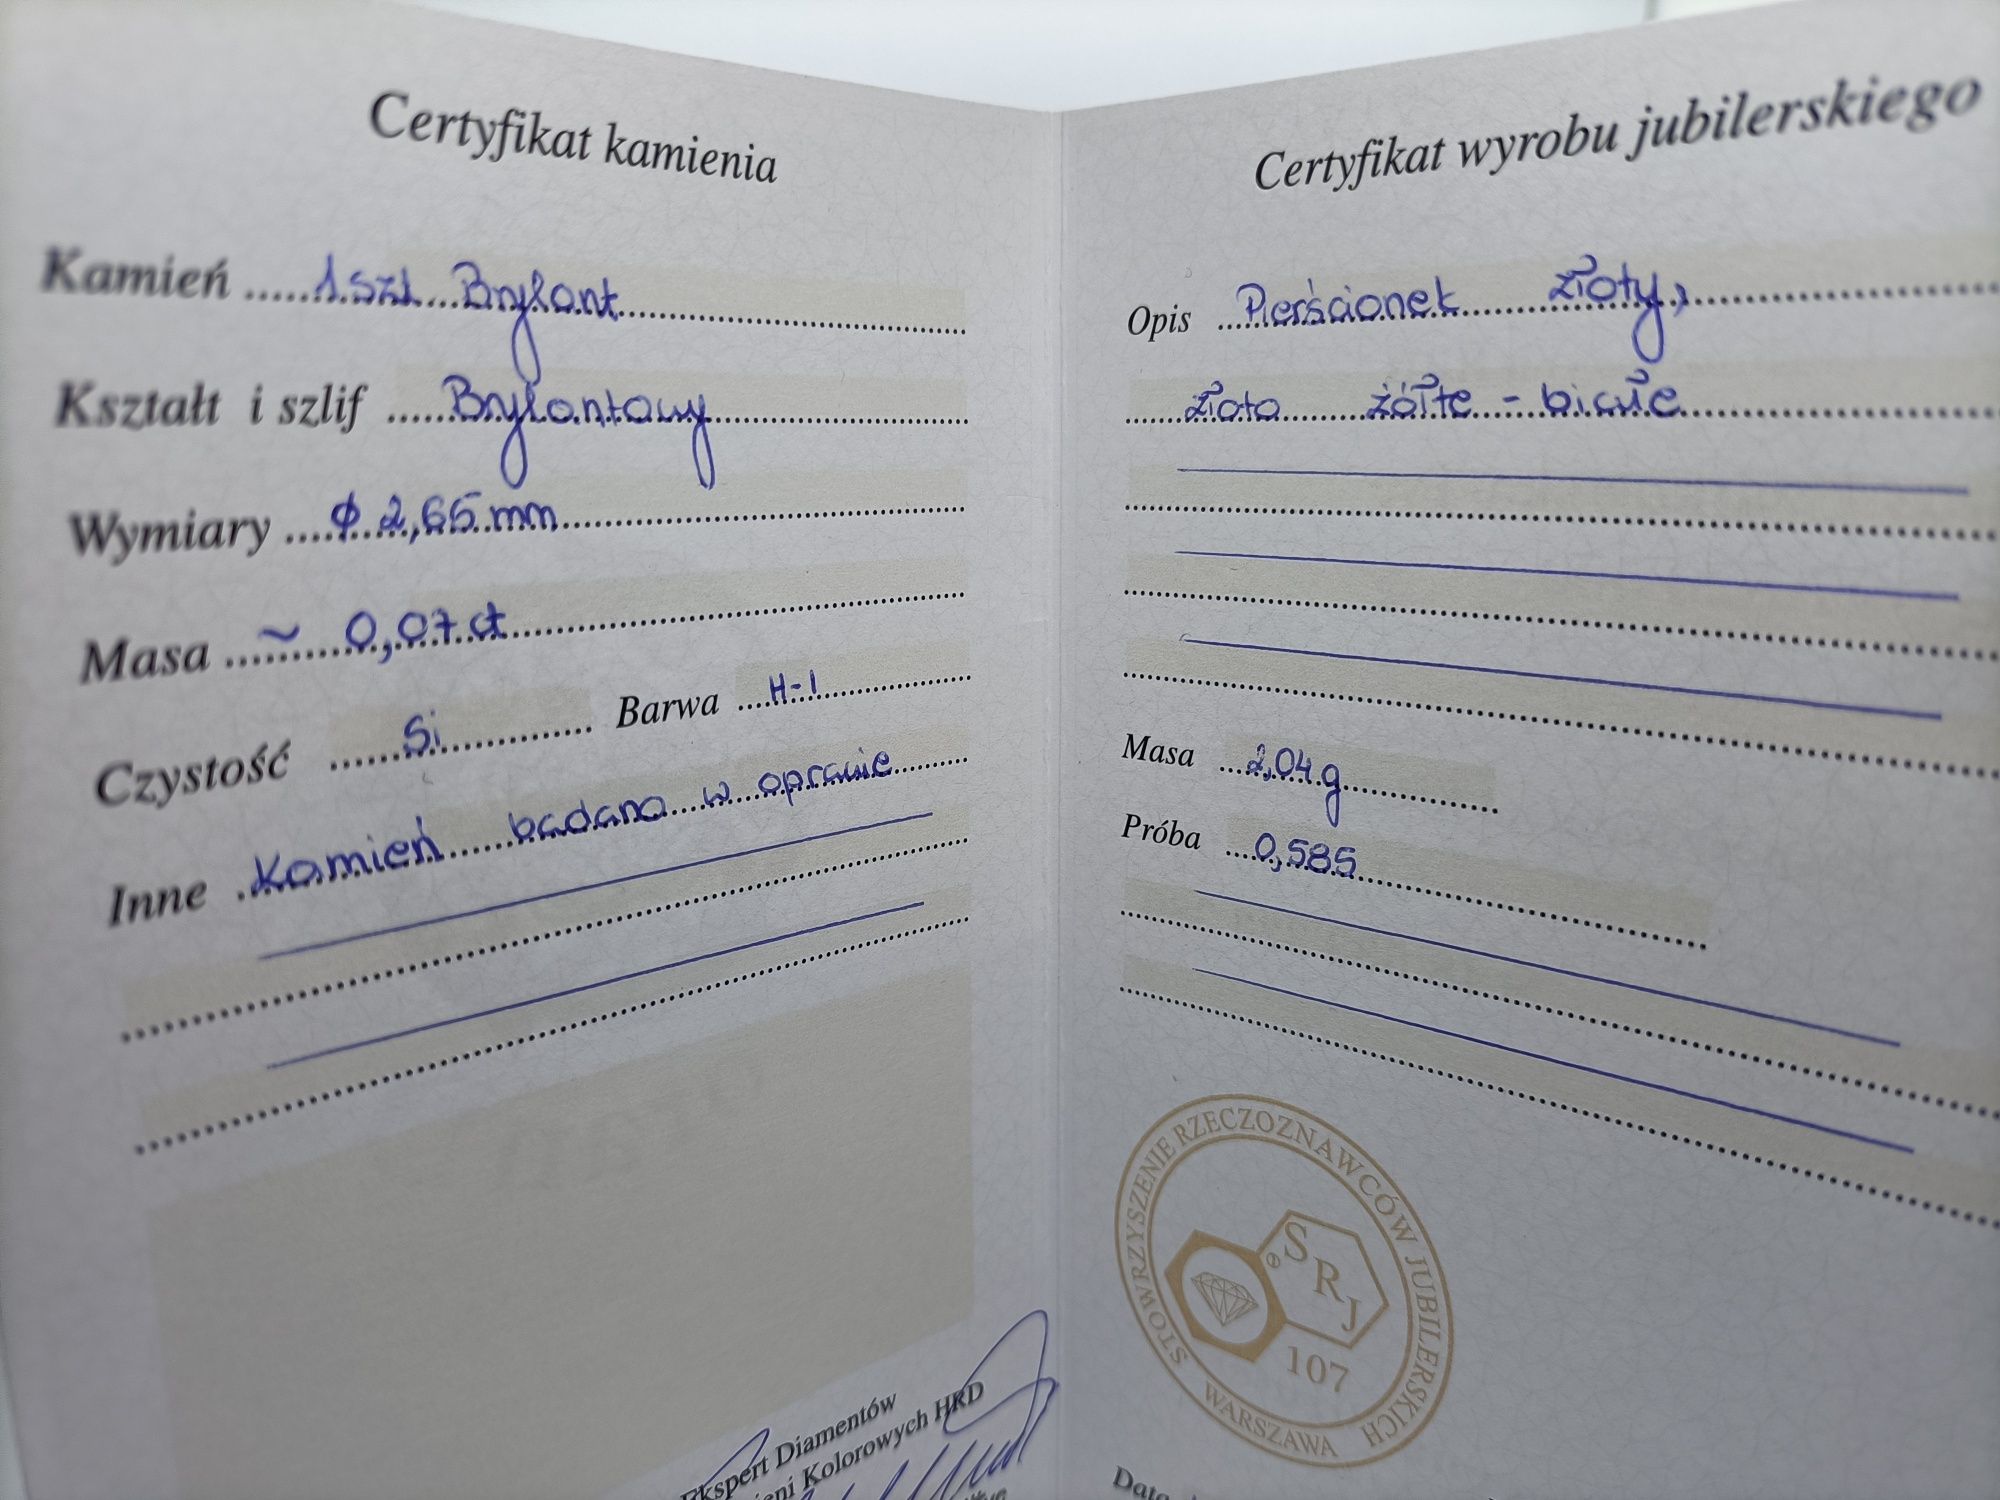 Certyfikat kamienia
Kamień 1 szt Brylant
Kształt i szlif Brylantowy
Wymiary ϕ 2,65 mm
Masa ~ 0,07 ct
Czystość Si Barwa H-I
Inne Kamień badano w oprawie
Ekspert Diamentów
Kolorowych HRD
Certyfikat wyrobu jubilerskiego
Opis Pierścionek złoty,
złoto żółte - białe
Masa 2,04 g
Próba 0,585
STOWRZYSZENIE RZECZOZNAWCÓW JUBILERSKICH
WARSZAWA
SRJ
107
Data